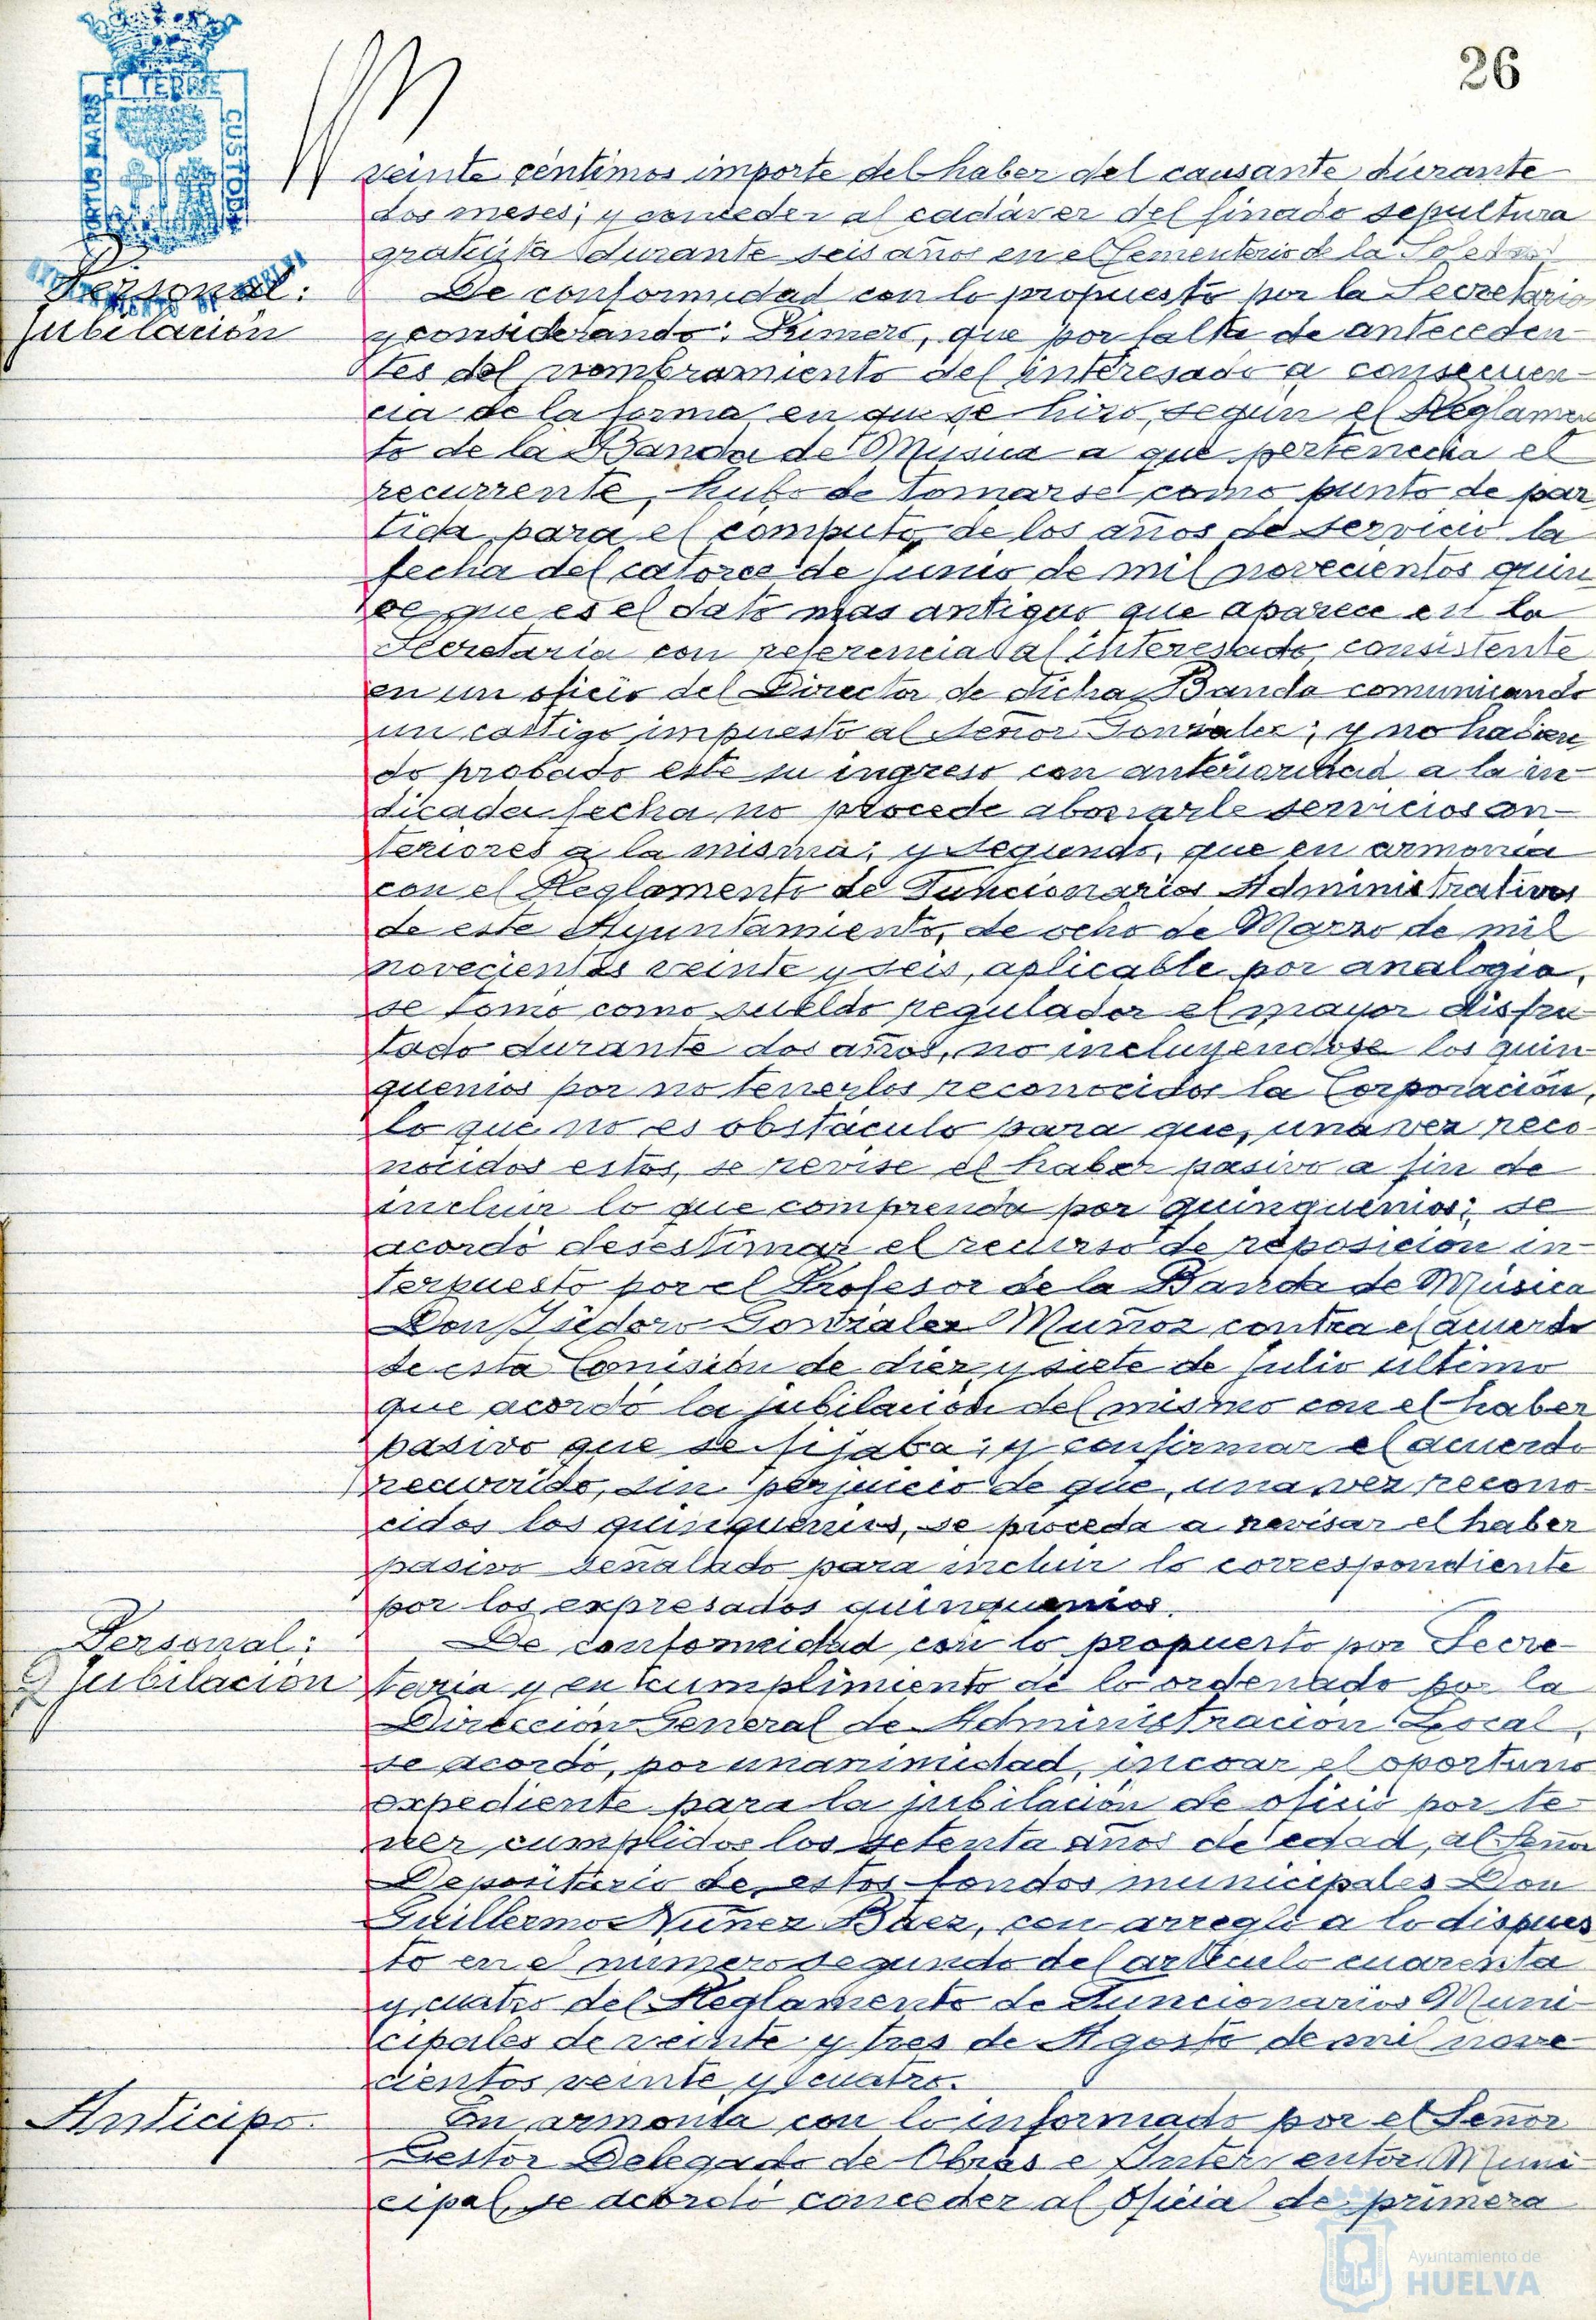 26
ET TERRE
PORTUS MARIS
CUSTODIA
veinte céntimos importe del haber del causante durante
dos meses; y conceder al cadáver del finado sepultura
gratuita durante seis años en el Cementerio de la Soledad
Personal:
Jubilación
De conformidad con lo propuesto por la Secretaria
y considerando: Primero, que por falta de anteceden-
tes del nombramiento del interesado a consecuen-
cia de la forma en que se hizo, según el Reglamen
to de la Banda de Musica a que pertenecia el
recurrente, hubo de tomarse como punto de par
tida para el computo de los años de servicio la
fecha del catorce de junio de mil novecientos quin
ce que es el dato mas antiguo que aparece en la
Secretaria con referencia al interesado, consistente
en un oficio del Director de dicha Banda comunicando
un castigo impuesto al Señor Gonzalez; y no habien
do probado este su ingreso con anterioridad a la in-
dicada fecha no procede abonarle servicios an-
teriores a la misma; y segundo, que en armonia
con el Reglamento de Funcionarios Administrativos
de este Ayuntamiento, de ocho de Marzo de mil
novecientos veinte y seis, aplicable por analogia,
se tomó como sueldo regulador el mayor disfru
tado durante dos años, no incluyendose los quin
quenios por no tenerlos reconocidos la Corporación,
lo que no es obstáculo para que, una vez reco-
nocidos estos, se revise el haber pasivo a fin de
incluir lo que comprenda por quinquenios; se
acordó desestimar el recurso de reposición in-
terpuesto por el Profesor de la Banda de Música
Don Isidoro Gonzalez Muñoz contra el acuerdo
de esta Comisión de diez y siete de julio ultimo
que acordó la jubilación del mismo con el haber
pasivo que se fijaba; y confirmar el acuerdo
recurrido, sin perjuicio de que, una vez recono-
cidos los quinquenios, se proceda a revisar el haber
pasivo señalado para incluir lo correspondiente
por los expresados quinquenios.
Personal:
Jubilacion
De conformidad con lo propuesto por Secre-
taria y en cumplimiento de lo ordenado por la
Dirección General de Administracion Local,
se acordó, por unanimidad, incoar el oportuno
expediente para la jubilación de oficio por te-
ner cumplidos los setenta años de edad, al Señor
Depositario de estos fondos municipales Don
Guillermo Nuñez Báez, con arreglo a lo dispues
to en el numero segundo del articulo cuarenta
y cuatro del Reglamento de Funcionarios Muni-
cipales de veinte y tres de Agosto de mil nove-
cientos veinte y cuatro.
Anticipo.
En armonia con lo informado por el Señor
Gestor Delegado de Obras e Interventor Muni-
cipal, se acordó conceder al Oficial de primera
Ayuntamiento de
HUELVA